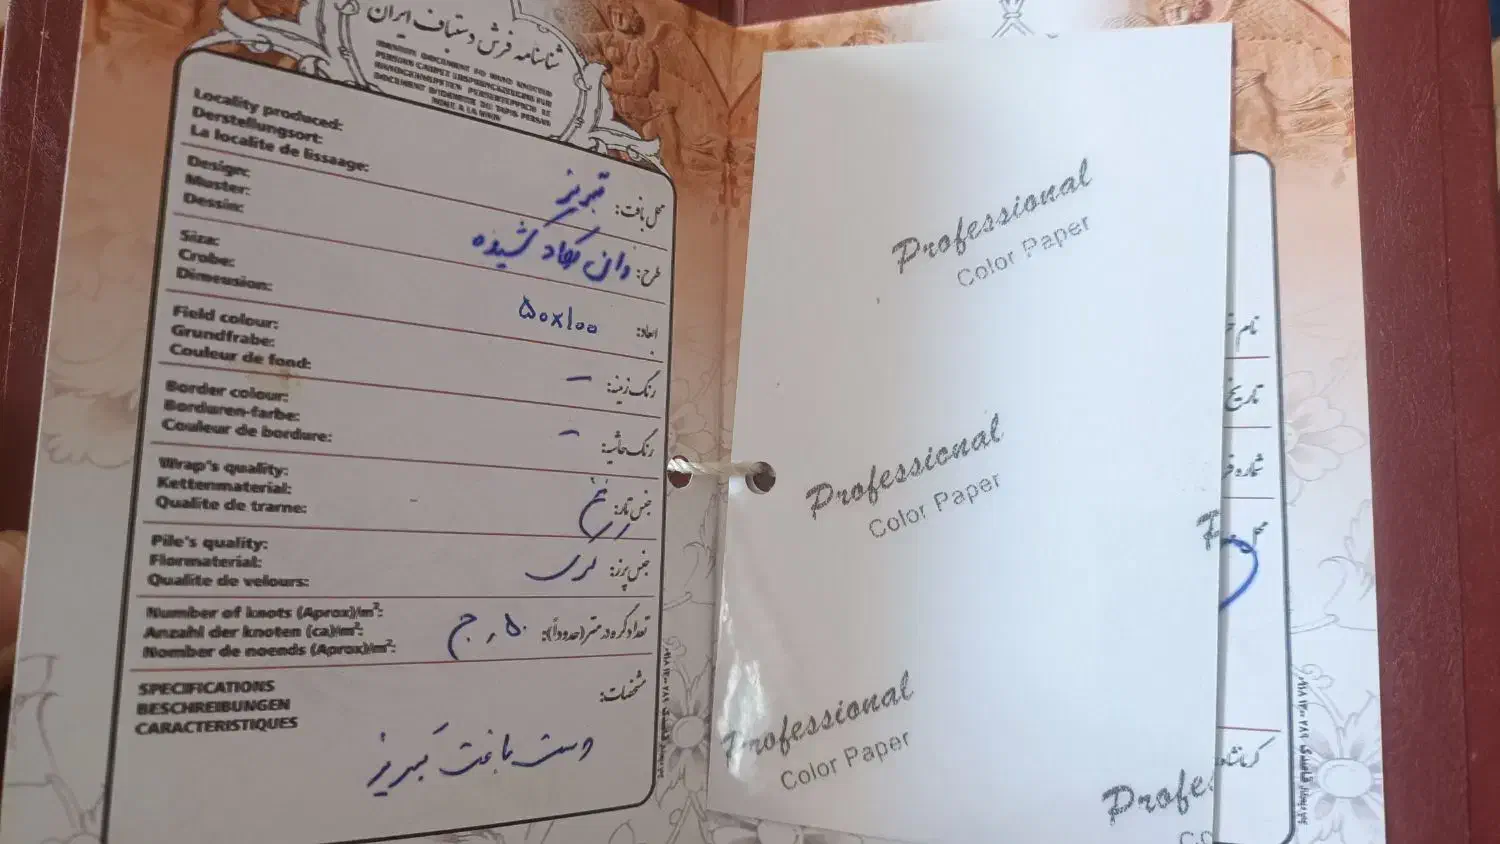 شناسنامه فرش دستباف ایران
IDENTITY DOCUMENT TO HAND KNOTTED
PERSIAN CARPET URSPRUNGSZEUGNIS FUR
HANDGEKNUPFTEN PERSERTEPPICH LE
DOCUMENT D'IDENTITE DU TAPIS PERSAN
NOUE A LA MAIN
Locality produced:
Derstellungsort:
La localite de lissaage:
محل بافت: تبریز
Design:
Muster:
Dessin:
طرح:
Siza:
Crobe:
Dimeusion:
ابعاد: ۵۰x۱۰۰
Field colour:
Grundfrabe:
Couleur de fond:
رنگ زمینه: –
Border colour:
Borduren-farbe:
Couleur de bordure:
رنگ حاشیه: –
Wrap's quality:
Kettenmaterial:
Qualite de trarne:
جنس تار: نخ
Pile's quality:
Flormaterial:
Qualite de velours:
جنس پرز: کرک
Number of knots (Aprox)/m²:
Anzahl der knoten (ca)/m²:
Nomber de noends (Aprox)/m²:
تعداد گره در متر (حدوداً): ۵۰ رج
SPECIFICATIONS
BESCHREIBUNGEN
CARACTERISTIQUES
مشخصات:
دست بافت تبریز
Professional
Color Paper
Professional
Color Paper
Professional
Color Paper
Profes
نام
تاریخ
شماره